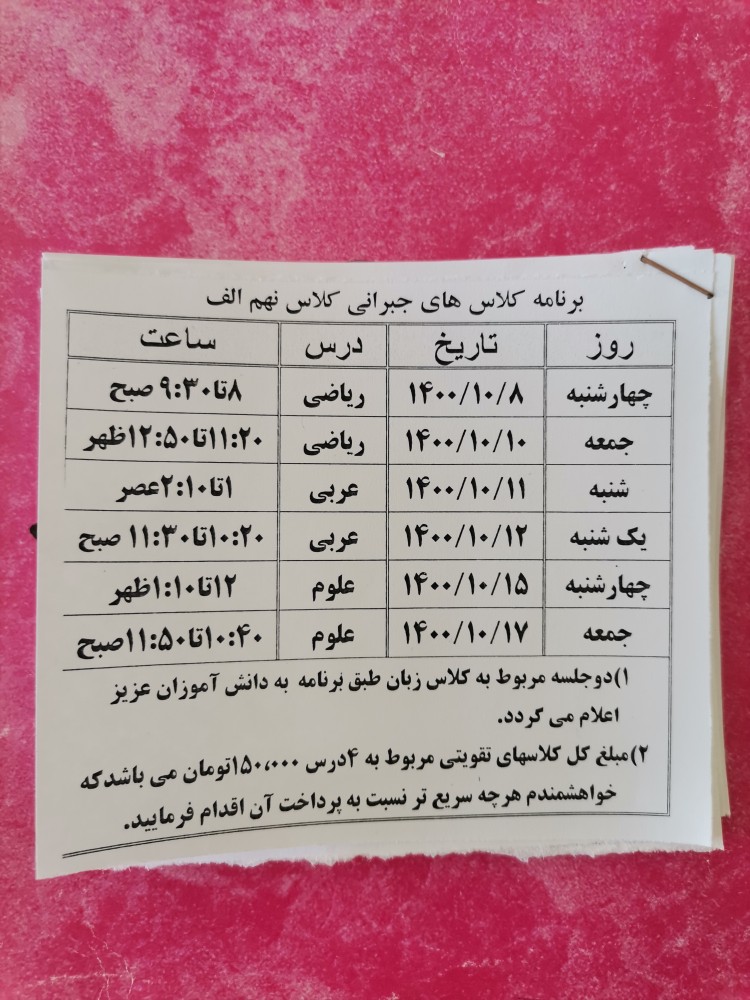 برنامه کلاس های جبرانی کلاس نهم الف
روز تاریخ درس ساعت
چهارشنبه ۱۴۰۰/۱۰/۸ ریاضی ۸تا۹:۳۰ صبح
جمعه ۱۴۰۰/۱۰/۱۰ ریاضی ۱۱:۲۰تا۱۲:۵۰ظهر
شنبه ۱۴۰۰/۱۰/۱۱ عربی ۱تا۲:۱۰عصر
یک شنبه ۱۴۰۰/۱۰/۱۲ عربی ۱۰:۲۰تا۱۱:۳۰ صبح
چهارشنبه ۱۴۰۰/۱۰/۱۵ علوم ۱۲تا۱:۱۰ظهر
جمعه ۱۴۰۰/۱۰/۱۷ علوم ۱۰:۴۰تا۱۱:۵۰صبح
۱)دوجلسه مربوط به کلاس زبان طبق برنامه به دانش آموزان عزیز
اعلام می گردد.
۲)مبلغ کل کلاسهای تقویتی مربوط به ۴درس ۱۵۰،۰۰۰تومان می باشدکه
خواهشمندم هرچه سریع تر نسبت به پرداخت آن اقدام فرمایید.